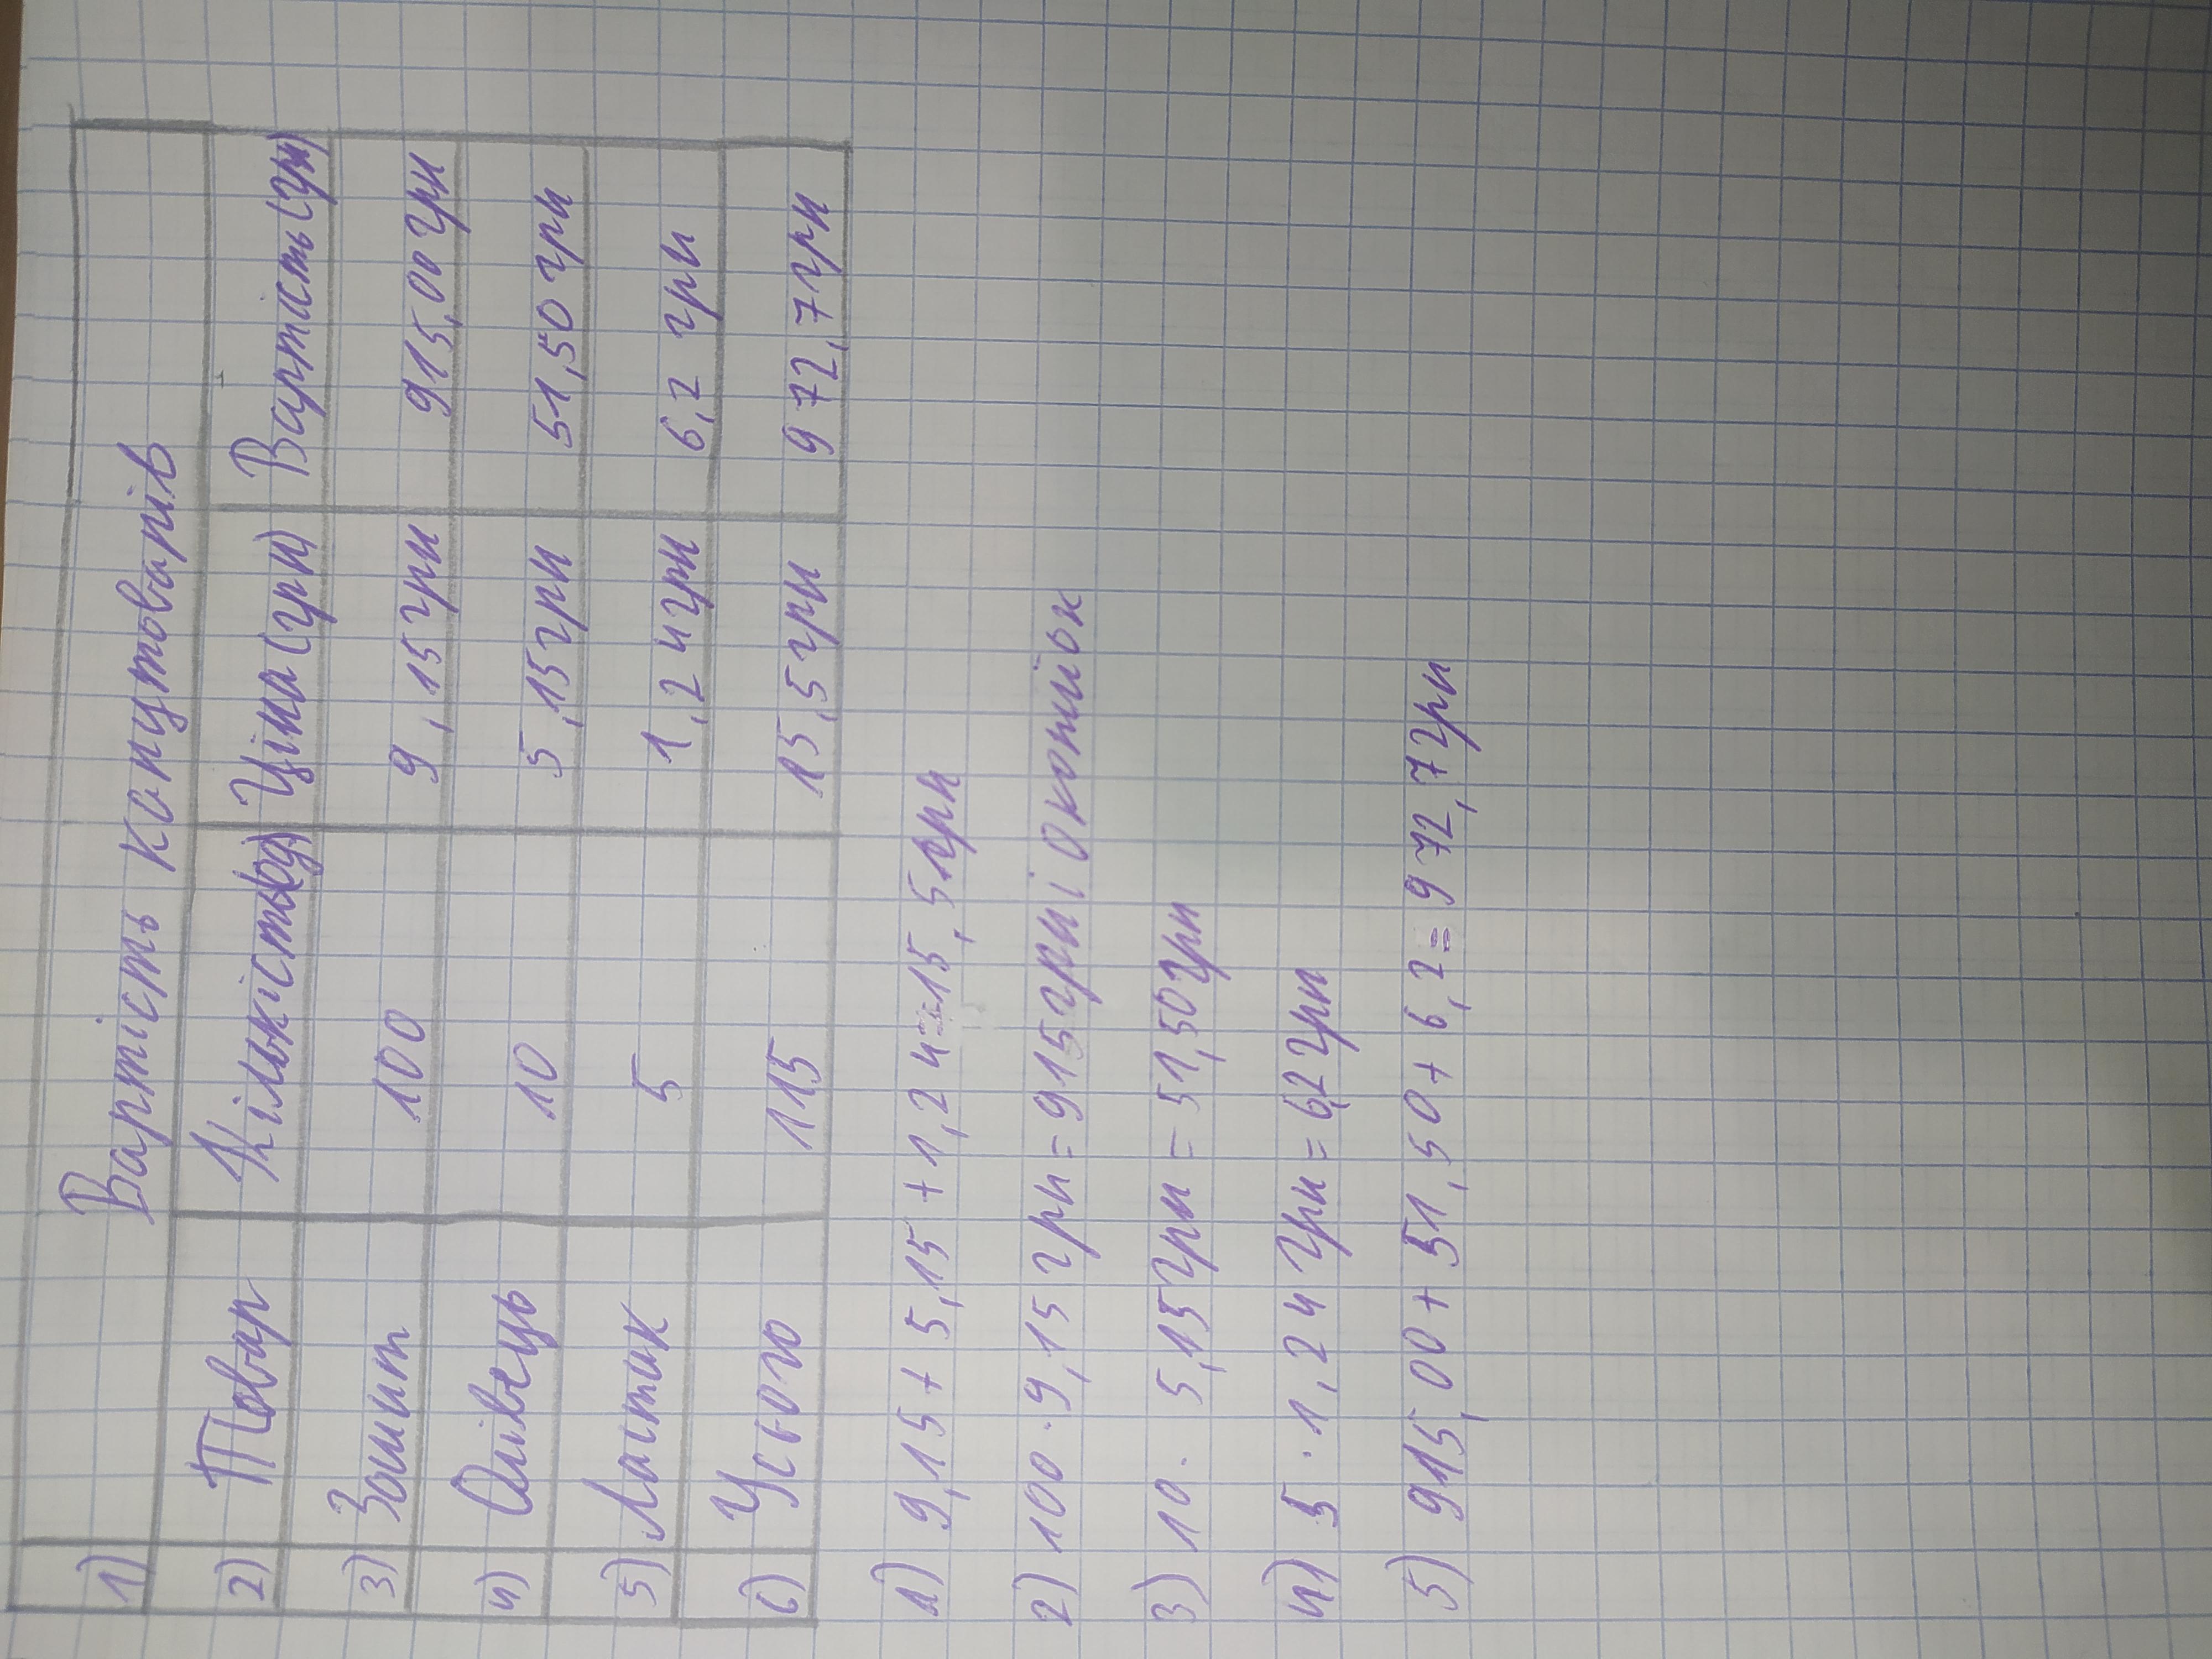 1) Вартість канцтоварів
2) Товар Кількість(од) Ціна(грн) Вартість(грн)
3) Зошит 100 9,15грн 915,00грн
4) Олівець 10 5,15грн 51,50грн
5) Ластик 5 1,24грн 6,2 грн
6) Усього 115 15,5грн 972,7грн
1) 9,15+5,15+1,24=15,5грн
2) 100·9,15грн=915грн і 0копійок
3) 10·5,15грн=51,50грн
4) 5·1,24грн=6,2грн
5) 915,00+51,50+6,2=972,7грн